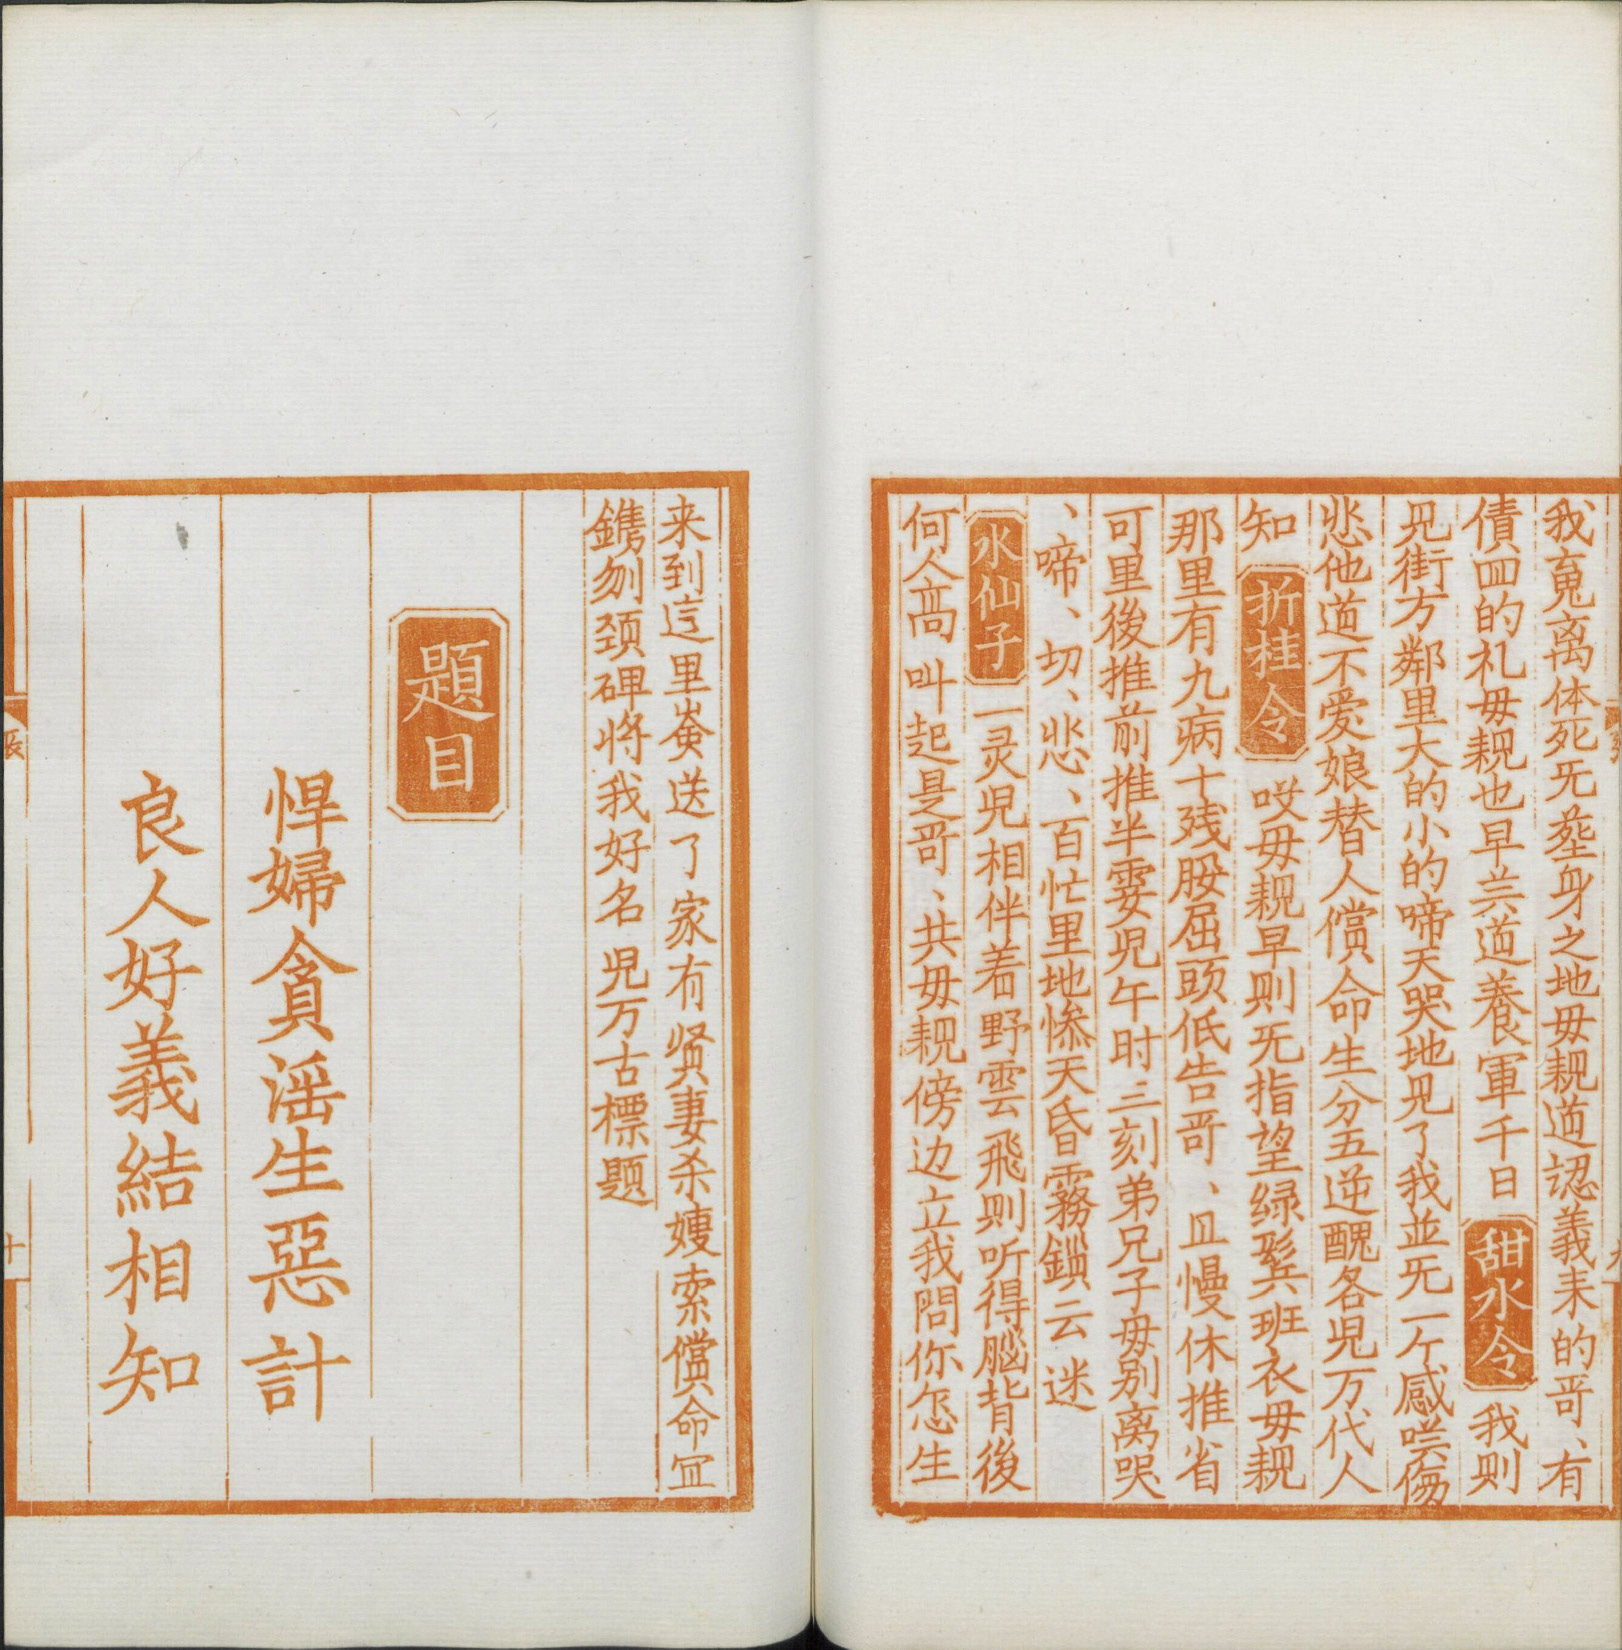 我䰟离体死旡塟身之地毋親道認義耒的哥、有
債皿的礼毋親也早共道養軍千日 甜水令 我则
見街方鄰里大的小的啼天哭地見了我並旡一个感嘆傷
悲他道不爱娘替人償命生分五逆醜名児万代人
知 折桂令 哎毋親早则旡指望绿鬓班衣毋親
那里有九病十残股屈頭低告哥、且慢休推省
可里後推前推半霎児午时三刻弟兄子毋别离哭
、啼、切、悲、百忙里地惨天昏霧鎖云迷
水仙子 一灵児相伴着野雲飛则听得腦背後
何人高叫起是哥、共毋親傍边立我問你怎生
来到這里送了家有賢妻杀嫂索償命冝
鐫刎頚碑将我好名児万古標题
題目
悍婦貪滛生惡計
良人好義結相知
張
十